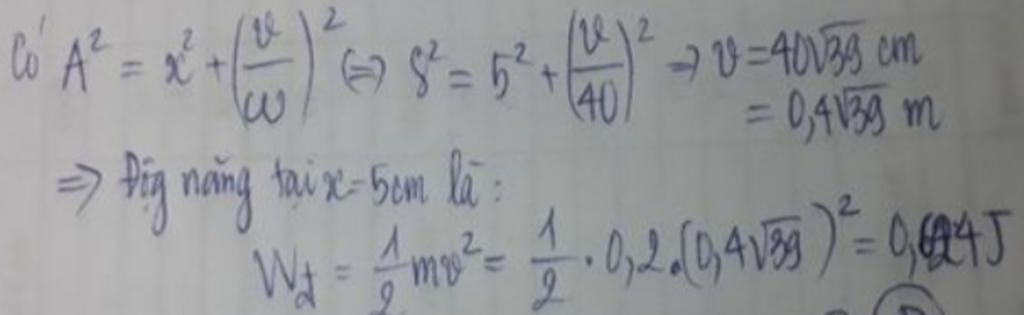 Có A² = x² + (v/ω)² (=> 8² = 5² + (v/40)² => v = 40√39 cm
= 0,4√39 m
=> Động năng tại x=5cm là:
W_đ = 1/2 mv² = 1/2 . 0,2.(0,4√39)² = 0,624J